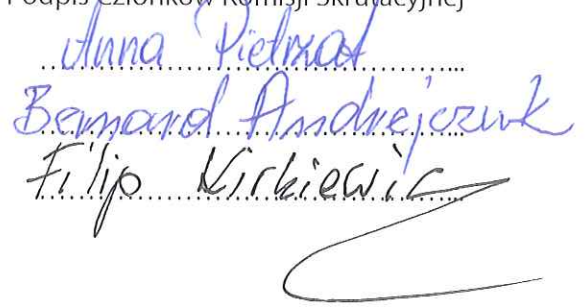 Podpis Członków Komisji Skrutacyjnej
Anna Pietrzak
Bernard Andrejczuk
Filip Kirkiewicz